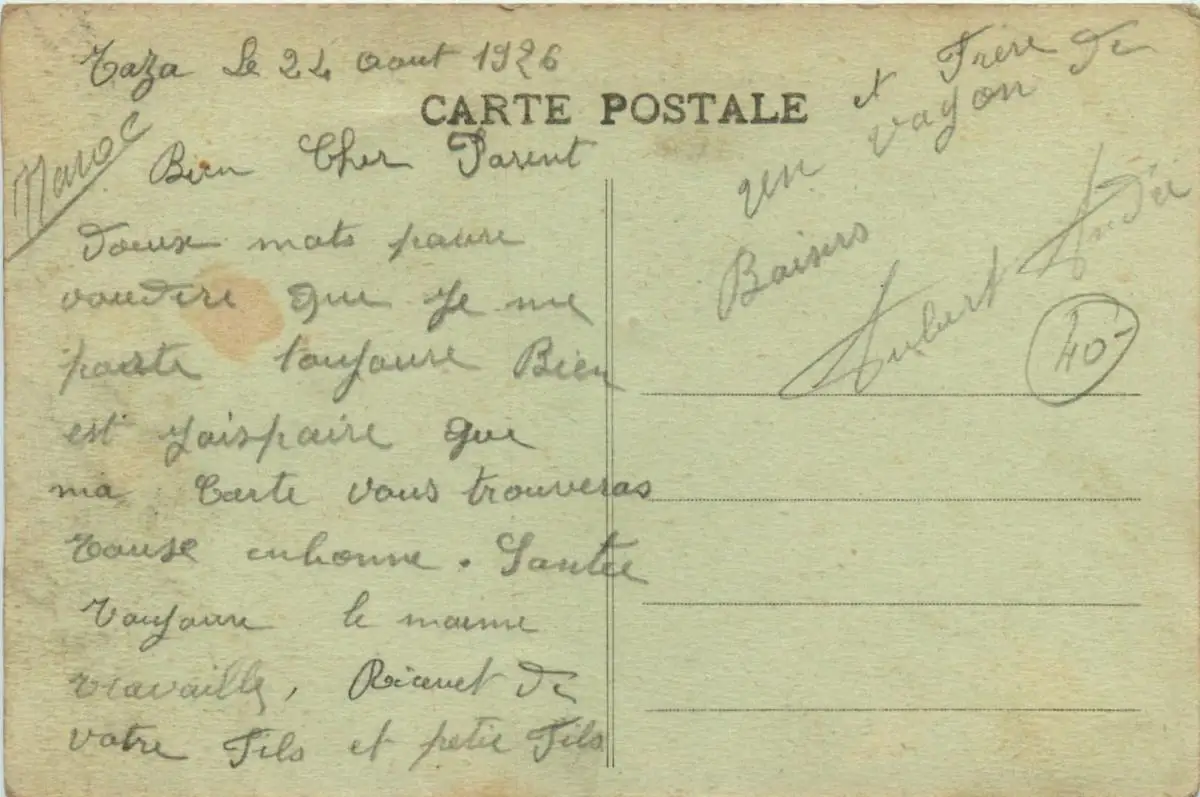 Taza Le 24 aout 1926
CARTE POSTALE
Maroc
Bien Cher Parent
doeux mots paure
voudire que Je me
porte toujoure Bien
est Jaispaire que
ma Carte vous trouveras
touse enbonne. Santée
Toujoure le maeme
travaille,
votre Fils et petie Fils
et Frère de
un vagon
Baisers
Aubert Andée
40-